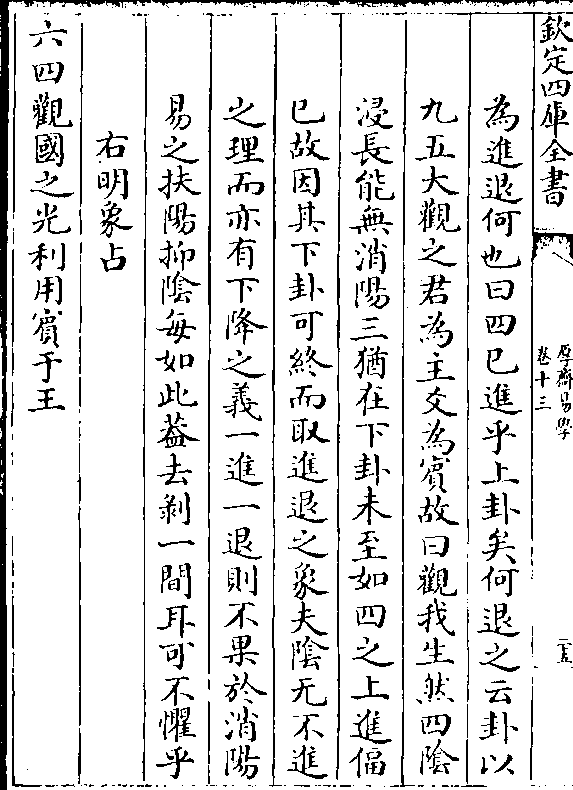 欽定四庫全書
厚齋易學
卷十三
二五
為進退何也曰四已進乎上卦矣何退之云卦以
九五大觀之君為主爻為賓故曰觀我生然四陰
浸長能無消陽三猶在下卦未至如四之上進偪
已故因其下卦可終而取進退之象夫陰无不進
之理而亦有下降之義一進一退則不果於消陽
易之扶陽抑陰每如此葢去剥一間耳可不懼乎
右明象占
六四觀國之光利用賔于王